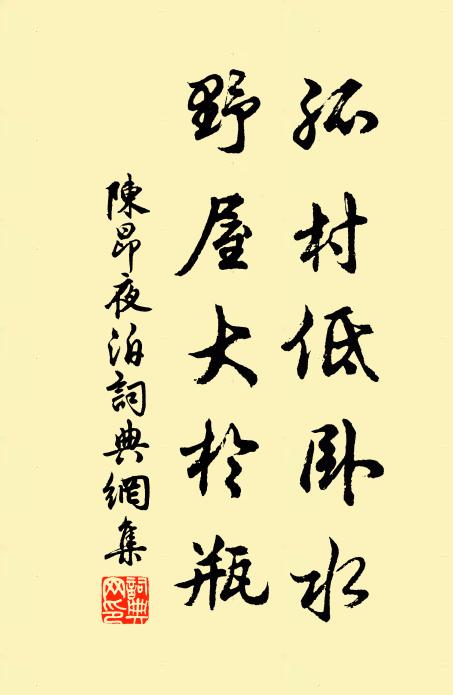 孤村低卧水
野屋大於瓶
陳昂夜泊詞典網集
詞典網印